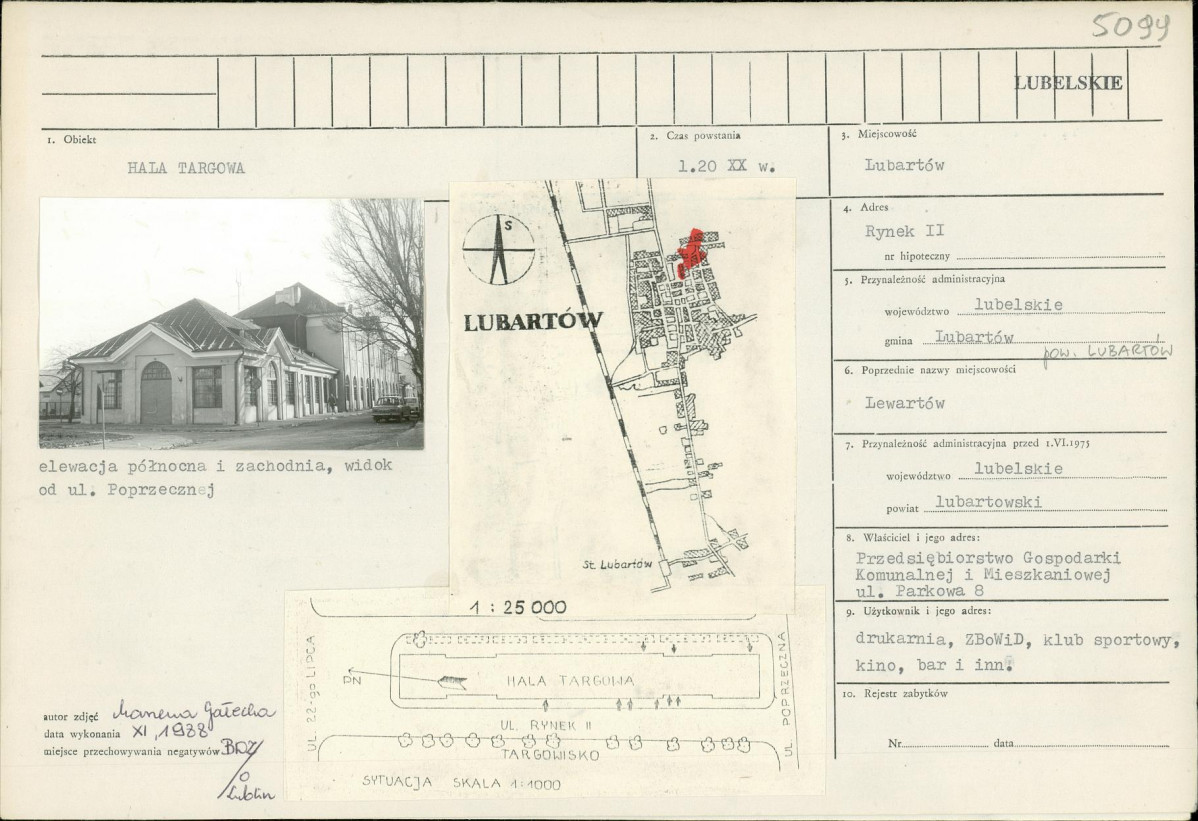 5099
LUBELSKIE
1. Obiekt
HALA TARGOWA
2. Czas powstania
l.20 XX w.
3. Miejscowość
Lubartów
4. Adres
Rynek II
nr hipoteczny
5. Przynależność administracyjna
województwo lubelskie
gmina Lubartów
pow. LUBARTÓW
6. Poprzednie nazwy miejscowości
Lewartów
7. Przynależność administracyjna przed 1.VI.1975
województwo lubelskie
powiat lubartowski
8. Właściciel i jego adres:
Przedsiębiorstwo Gospodarki
Komunalnej i Mieszkaniowej
ul. Parkowa 8
9. Użytkownik i jego adres:
drukarnia, ZBoWiD, klub sportowy,
kino, bar i inn.
10. Rejestr zabytków
Nr data
elewacja północna i zachodnia, widok
od ul. Poprzecznej
S
LUBARTÓW
St. Lubartów
1 : 25 000
UL. 22-go LIPCA
PN
HALA TARGOWA
UL. POPRZECZNA
UL. RYNEK II
TARGOWISKO
SYTUACJA SKALA 1:1000
autor zdjęć Gałecka
data wykonania XI, 1988
miejsce przechowywania negatywów BDZ/
O
Lublin